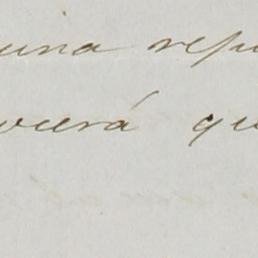 una repu
verá qu